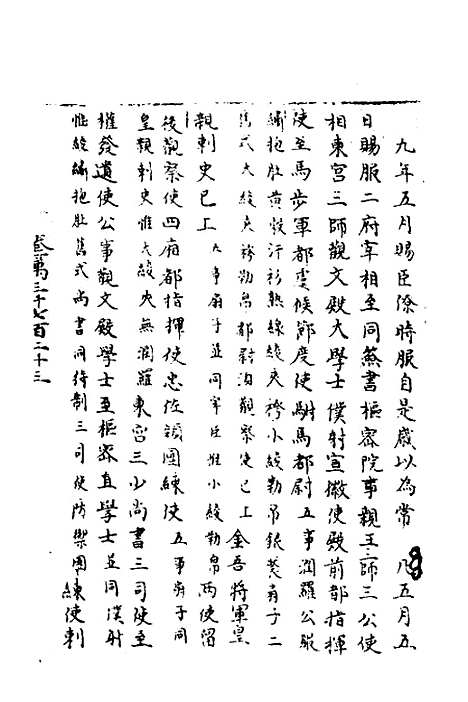 九年五月賜臣僚時服自是歲以為常 凡五月五
日賜服二府宰相至同簽書樞密院事親王三師三公使
相東宮三師觀文殿大學士僕射宣徽使殿前都指揮
使至馬步軍都虞候節度使駙馬都尉 五事潤羅公服
繡抱肚黃縠汗衫熟線綾夾袴小綾勒帛銀裝扇子二
舊式大綾夾袴勒帛都尉泊觀察使已上 金吾將軍皇
親刺史已上 六事扇子並同宰臣惟小綾勒帛 兩使留
後觀察使四廂都指揮使忠佐領團練使 五事扇子同
皇親刺史惟大綾夾無潤羅東宮三少尚書三司使至
權發遣使公事觀文殿學士至樞密直學士 並同僕射
惟綾繡抱肚舊式尚書同待制三司使防禦團練使刺
卷萬三千七百二十三